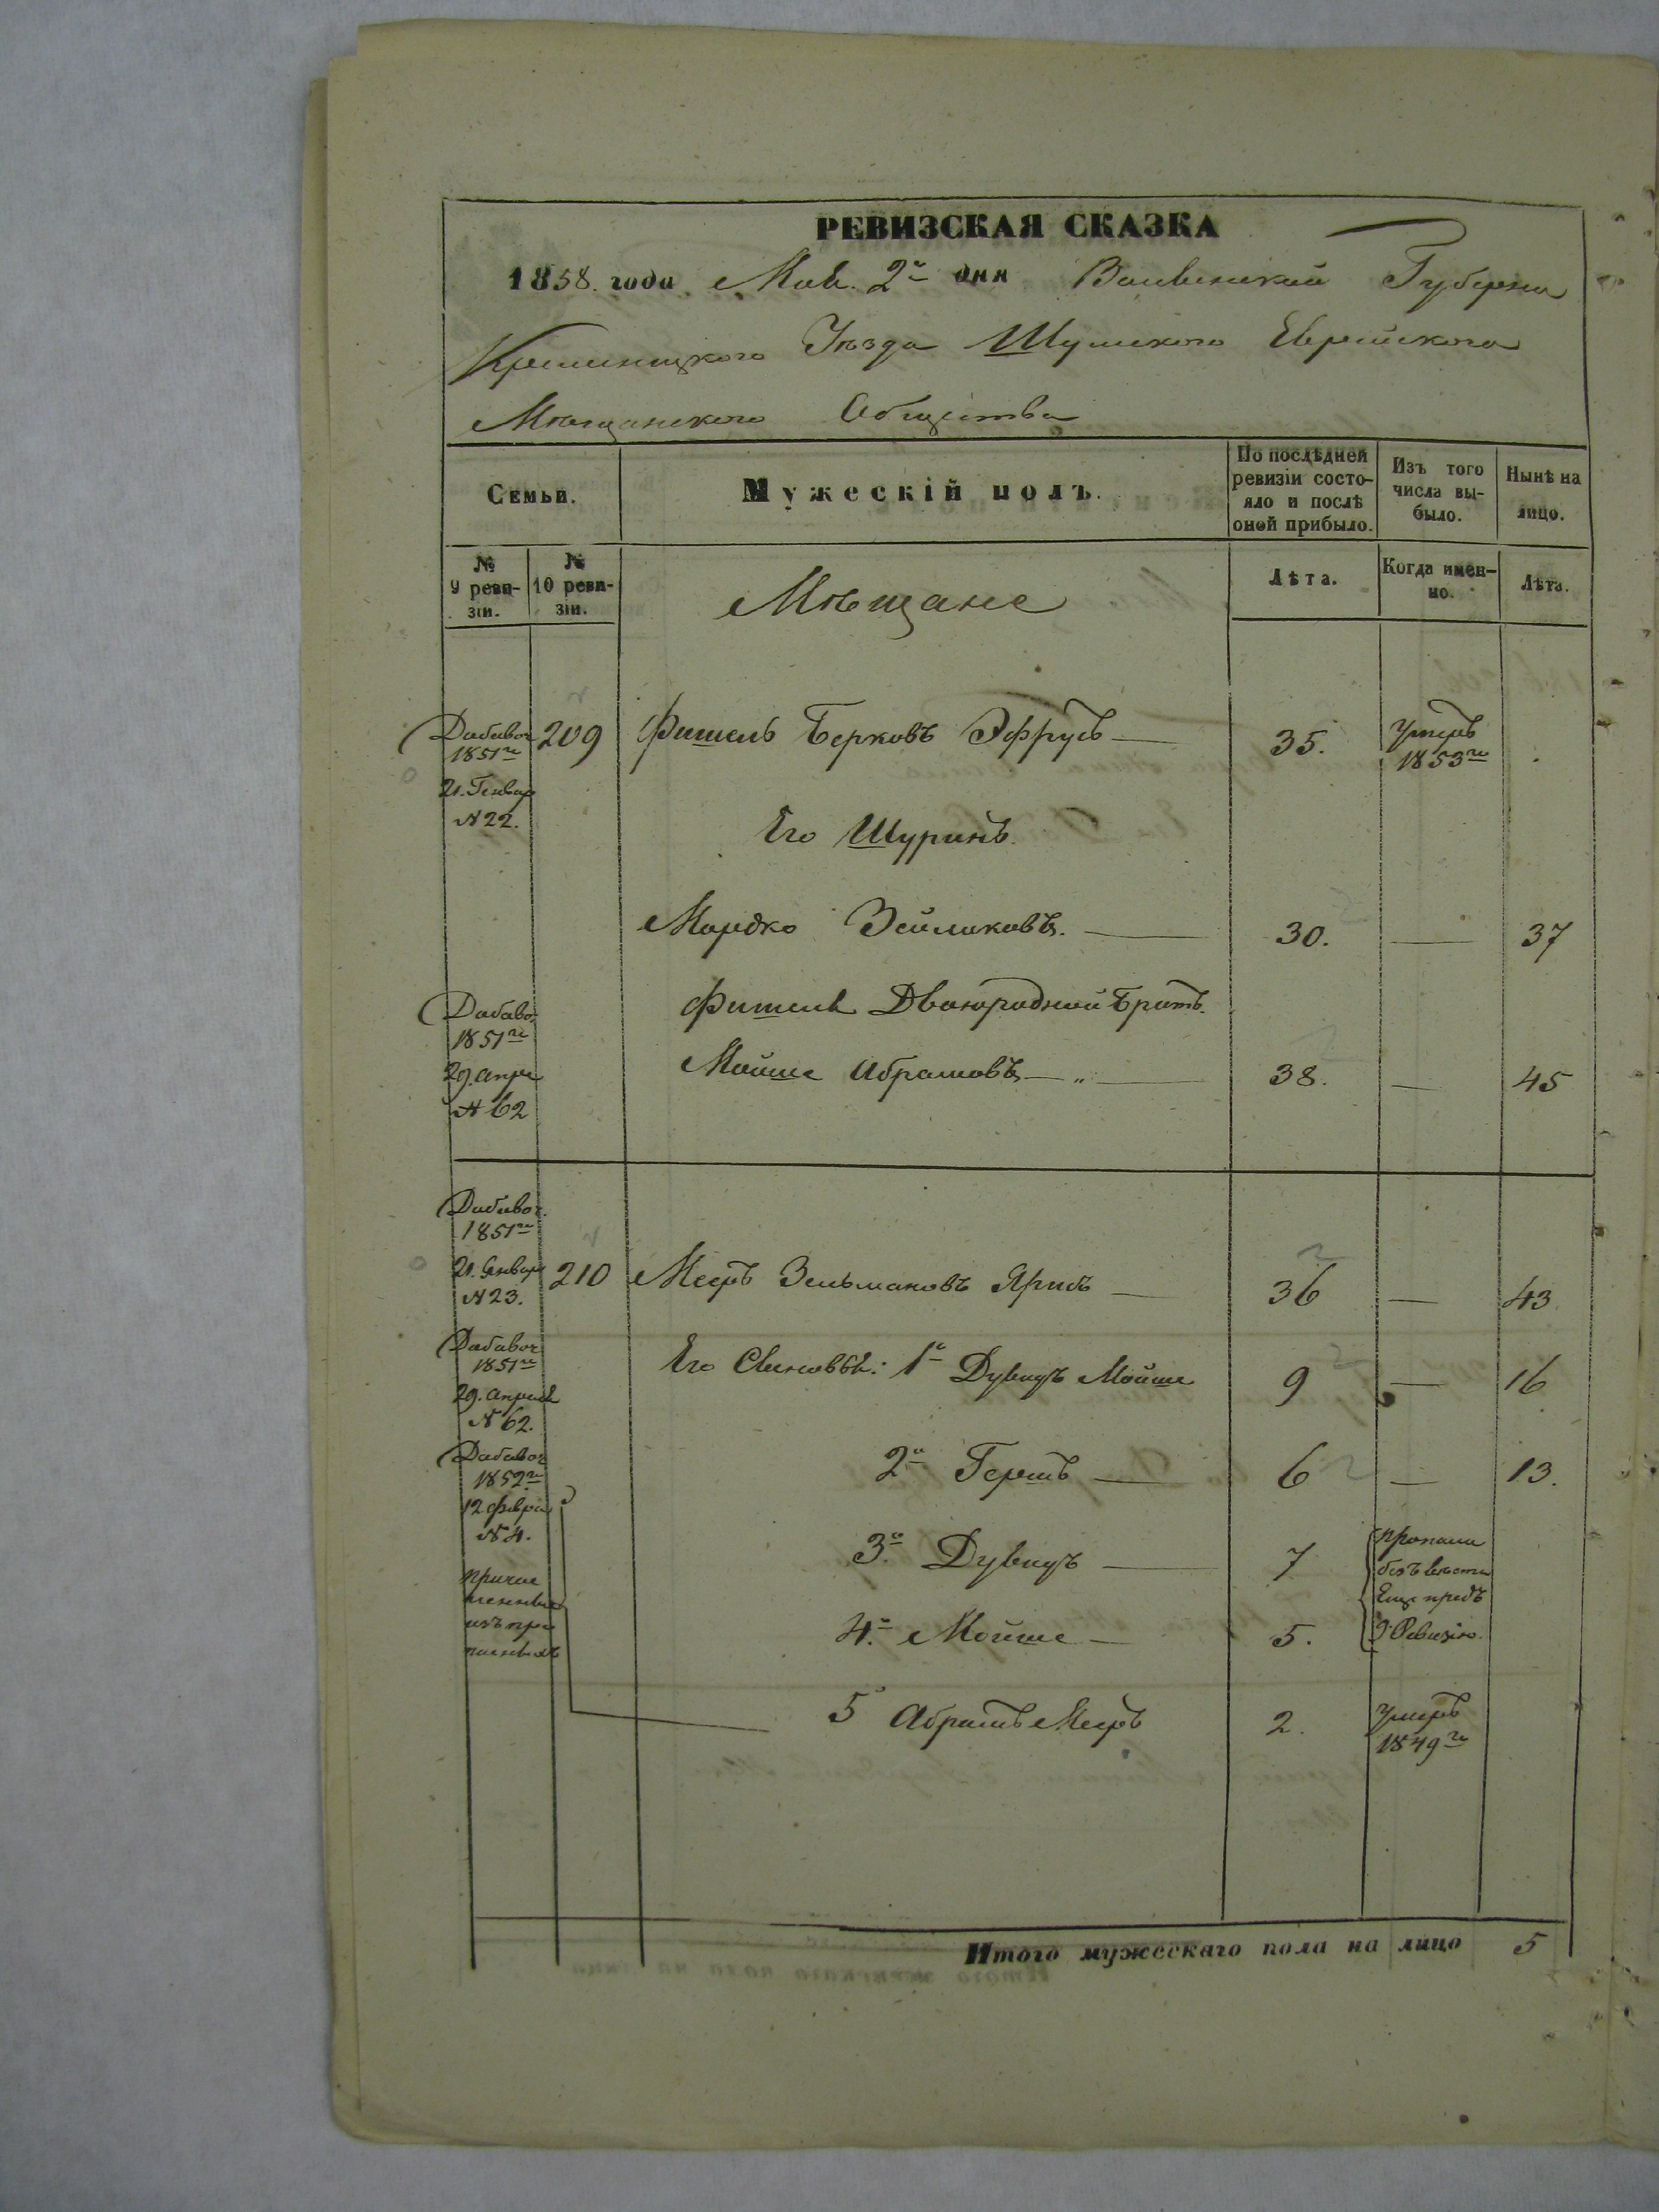 РЕВИЗСКАЯ СКАЗКА
1858. года Маія 2го дня Волынской Губерніи
Кременецкого Уѣзда Шумского Еврейского
Мѣщанского Общества
Семьи.
Мужескій полъ.
По послѣдней ревизіи состо-
яло и послѣ
оной прибыло.
Изъ того
числа вы-
было.
Нынѣ на
лицо.
№
9 реви-
зіи.
№
10 реви-
зіи.
Мѣщане
Лѣта.
Когда имен-
но.
Лѣта.
Добавоч
1851го
21. Генвар
N 22.
209 Фишель Берковъ Эфрусъ — 35. Умеръ
1853го
Его Шуринъ.
Мордко Зейликовъ. — 30. — 37
Добавоч
1851го
29. Апрел
N 62
Фишеля Двоюродной Братъ.
Мойше Абрамовъ — „ — 38. — 45
Добавоч.
1851го
21. Январ
N 23.
210 Мееръ Зельмановъ Ярисъ — 36 — 43
Добавоч
1851го
29. Апреля
N 62.
Его Сыновья: 1й Дувидъ Мойше 9 — 16
Добавоч
1852го
12 Февра
N 4.
2й Гершъ — 6 — 13.
3й Дувидъ — 7
пропали
безъ вести
Еще предъ
9 Ревизіею.
4й Мойше — 5.
5 Абрамъ Мееръ 2. Умеръ
1849го
Итого мужескаго пола на лицо 5